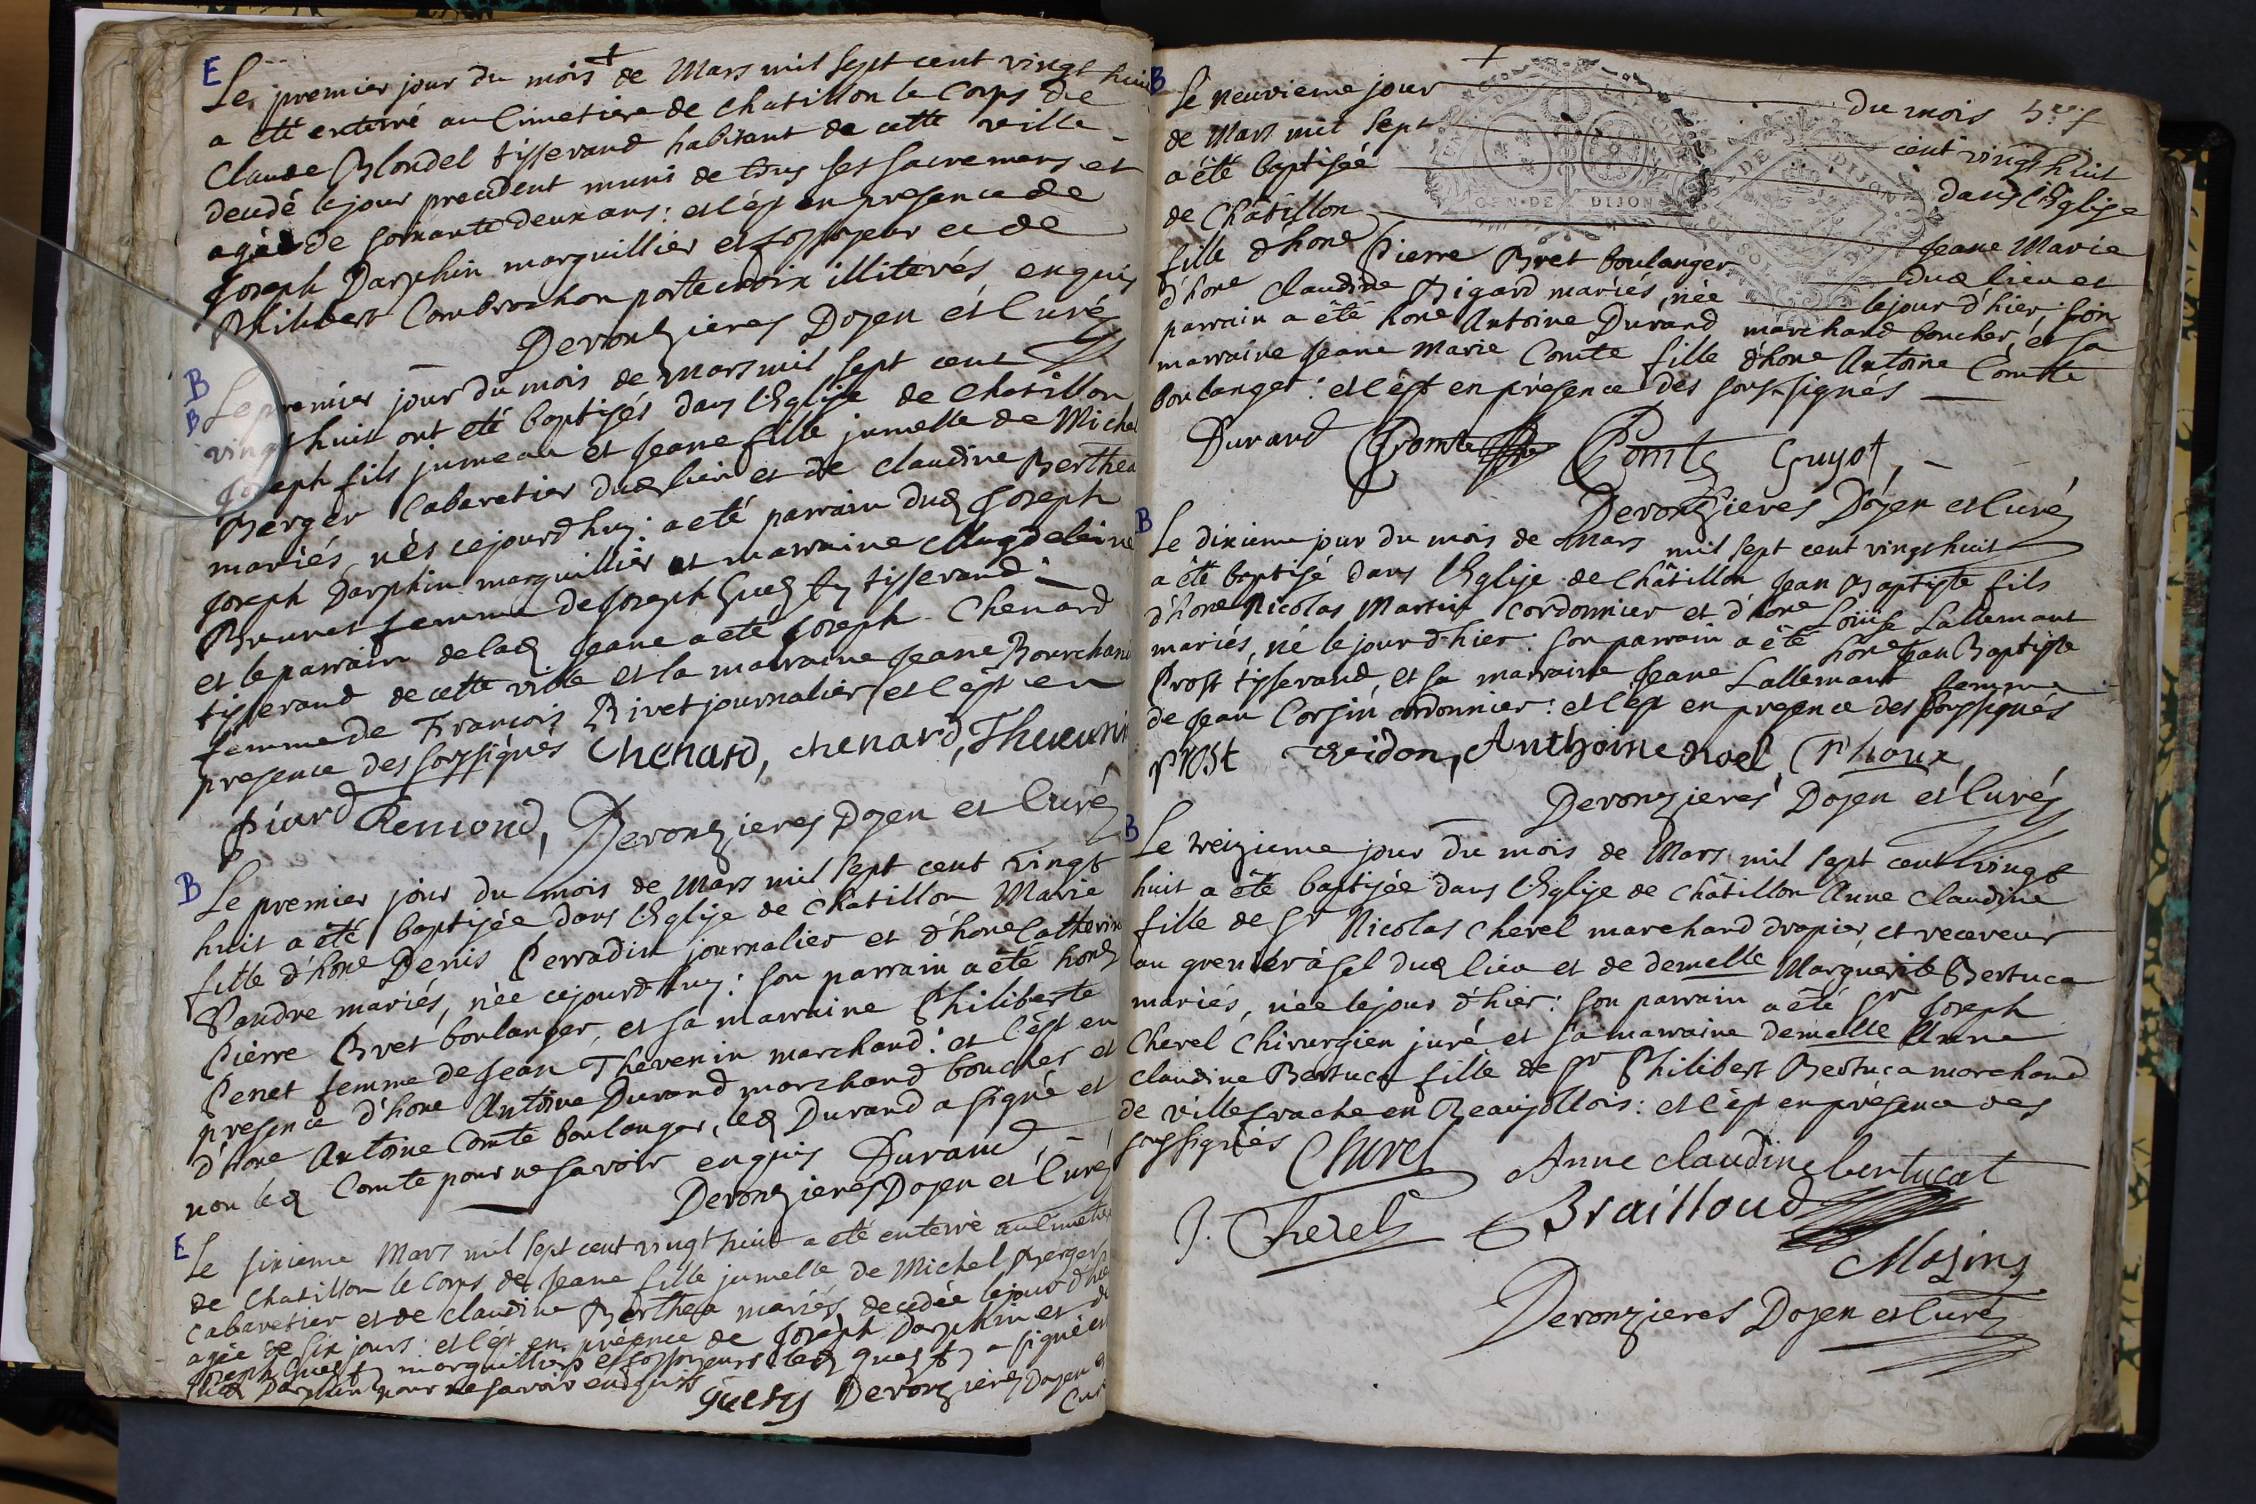 E
Le premier jour du mois de Mars mil sept cent vingt huit
a été enterré au Cimetiere de chatillon le Corps de
Claude Blondel tisserand habitant de cette ville
decedé le jour precedent muni de tous ses sacremens et
agé de soixante deux ans: et c'est en presence de
Joseph Darphin marguillier et fossoyeur et de
Philibert Combrochon porte croix illiterés enquis
Deronzieres Doyen et Curé
B
B
Le premier jour du mois de Mars mil sept cent
vingt huit ont été baptisés dans l'Eglise de Chatillon
Joseph fils jumeau et Jeane fille jumelle de Michel
Berger Cabaretier dud lieu et de claudine Berthea
mariés, nés cejourdhuy: a eté parrain dud Joseph
Joseph Darphin marguillier et marraine Magdeleine
Brunet femme de Joseph tisserand
et le parrain de lad Jeane a eté Joseph Chenard
tisserand de cette ville et la marraine Jeane
femme de François Rivet journalier et c'est en
presence des soussignés Chenard, chenard,
Piard Remond, Deronzieres Doyen et Curé
B
Le premier jour du mois de Mars mil sept cent vingt
huit a été baptisée dans l'Eglise de Châtillon Marie
fille d'hone Denis Perradin journalier et d'hone Catherine
Vandre mariés, née cejourdhuy: son parrain a été hone
Pierre Bret boulanger, et sa marraine Philiberte
Penet femme de Jean Thevenin marchand: et c'est en
presence d'hone Antoine Durand marchand boucher et
d'hone Antoine Comte boulanger, led Durand a signé et
non led Comte pour ne savoir enquis Durand
Deronzieres Doyen et Curé
E
Le sixieme Mars mil sept cent vingt huit a été enterré au Cimetiere
de Chatillon le Corps de Jeane fille jumelle de Michel Berger
Cabaretier et de claudine Berthea mariés, decedée le jour d'hier
agée de six jours: et c'est en présence de Joseph Darphin et de
Joseph marguilliers et fossoyeurs led a signé et
led Darphin pour ne savoir enquis Deronzieres Doyen et
Curé
B
Le neuvieme jour du mois
de Mars mil sept cent vingt huit
a été baptisée dans l'Eglise
de Châtillon Jeane Marie
fille d'hone Pierre Bret boulanger dud lieu et
d'hone Claudine Bigard mariés, née le jour d'hier: son
parrain a été hone Antoine Durand marchand boucher, et sa
marraine Jeane Marie Comte fille d'hone Antoine Comte
boulanger: et c'est en présence des soussignés
GEN·DE DIJON
Durand Comte Comte Guyot
Deronzieres Doyen et Curé
B
Le dixieme jour du mois de Mars mil sept cent vingt huit
a été baptisé dans l'Eglise de Châtillon Jean Baptiste fils
d'hone Nicolas Martin cordonnier et d'hone Loüise Lallemant
mariés, né le jour d'hier: son parrain a été hone Jean Baptiste
Prost tisserand, et sa marraine Jeane Lallemant femme
de Jean Corsin cordonnier: et c'est en presence des soussignés
Prost Anthoine noel
Deronzieres Doyen et Curé
B
Le treizieme jour du mois de Mars mil sept cent vingt
huit a été baptisée dans l'Eglise de Châtillon Anne Claudine
fille de Sr Nicolas Cherel marchand drapier, et receveur
au grenier à sel dud lieu et de demelle Marguerite Bertuca
mariés, née le jour d'hier: son parrain a été Sr Joseph
Cherel Chirurgien juré et sa marraine demelle Anne
claudine Bertuca fille de Sr Philibert Bertuca marchand
de villefrache en Beaujollois: et c'est en présence des
soussignés Cherel Anne claudine bertucat
J. Cherel Brailloud
Mazins
Deronzieres Doyen et Curé